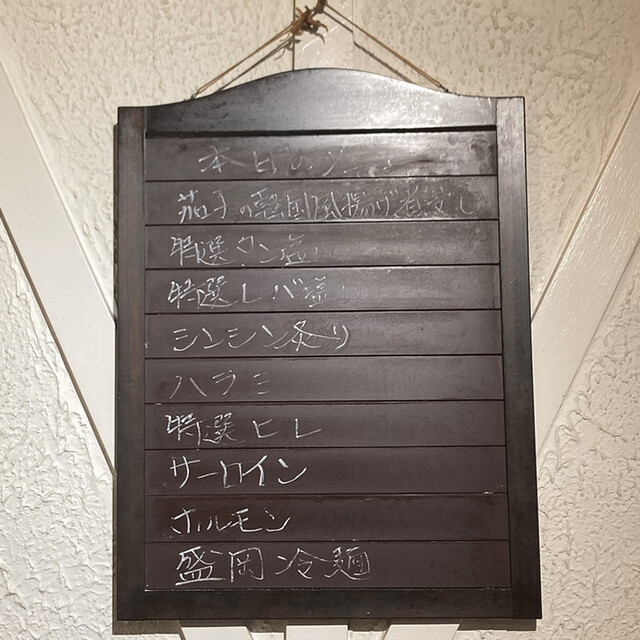 本日の
茄子の韓国風揚げ煮浸し
特選タン塩
特選レバ塩
シンシン炙り
ハラミ
特選ヒレ
サーロイン
ホルモン
盛岡冷麺